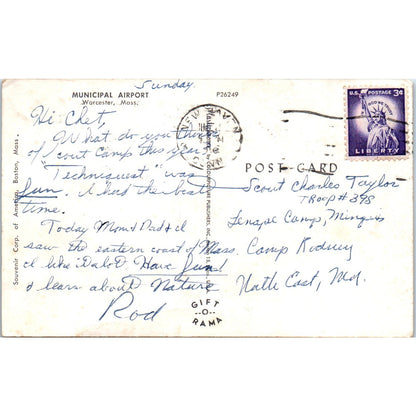 Sunday
MUNICIPAL AIRPORT
Worcester, Mass.
P26249
Hi Chet,
What do you think
of Scout Camp this year.
"Techniquest" was
fun. I had the best
time.
Today Mom & Dad & I
saw the eastern coast of Mass.
I like Have fun
& learn about Nature
Rod
Souvenir Corp. of America, Boston, Mass.
NEW HAVEN
GIFT
-O-
RAMA
U.S. POSTAGE 3¢
IN GOD WE TRUST
LIBERTY
POST CARD
Scout Charles Taylor
TROOP #398
Lenape Camp,
Camp Rodney
North East, Md.